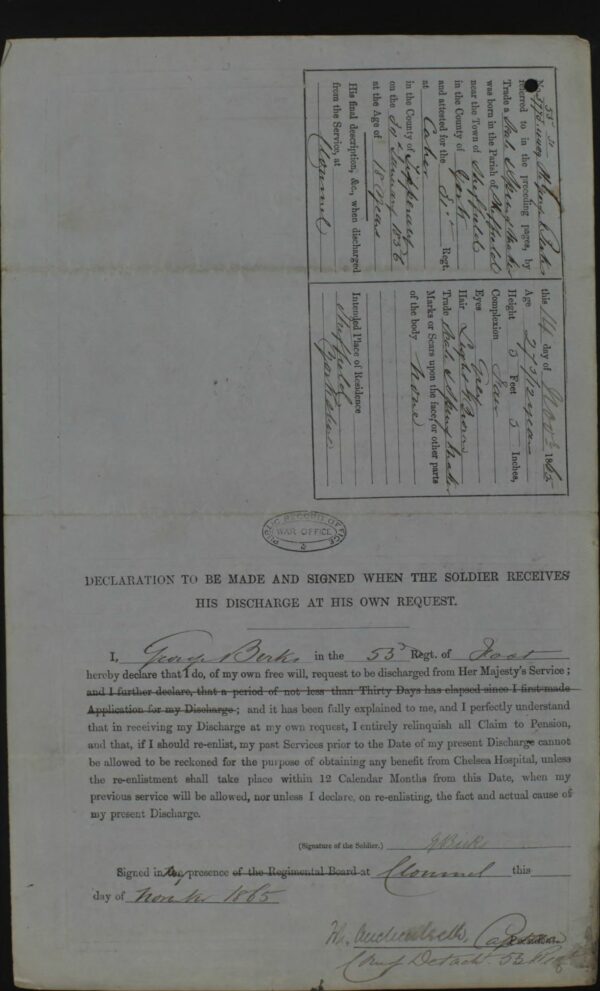 No 775
referred to in the preceding pages, by
Trade a
was born in the Parish of Sheffield
near the Town of Sheffield
in the County of York
and attested for the Regt.
at Caher
in the County of Tipperary
on the 30 January 1856
at the Age of 18 years
His final description, &c., when discharged
from the Service, at
Clonmel
this 14 day of Novr 1865
Age 27 9/12 years
Height 5 Feet 5 Inches,
Complexion Fair
Eyes Grey
Hair Light Brown
Trade
Marks or Scars upon the face, or other parts
of the body None
Intended Place of Residence
Sheffield
Yorkshire
PUBLIC RECORD OFFICE
WAR OFFICE
DECLARATION TO BE MADE AND SIGNED WHEN THE SOLDIER RECEIVES
HIS DISCHARGE AT HIS OWN REQUEST.
I, George Berks in the 53d Regt. of Foot
hereby declare that I do, of my own free will, request to be discharged from Her Majesty's Service;
and I further declare, that a period of not less than Thirty Days has elapsed since I first made
Application for my Discharge; and it has been fully explained to me, and I perfectly understand
that in receiving my Discharge at my own request, I entirely relinquish all Claim to Pension,
and that, if I should re-enlist, my past Services prior to the Date of my present Discharge cannot
be allowed to be reckoned for the purpose of obtaining any benefit from Chelsea Hospital, unless
the re-enlistment shall take place within 12 Calendar Months from this Date, when my
previous service will be allowed, nor unless I declare, on re-enlisting, the fact and actual cause of
my present Discharge.
(Signature of the Soldier.) G Berks
Signed in my presence of the Regimental Board at Clonmel this
day of 1865
Captain
Comg Detacht 53 Regt